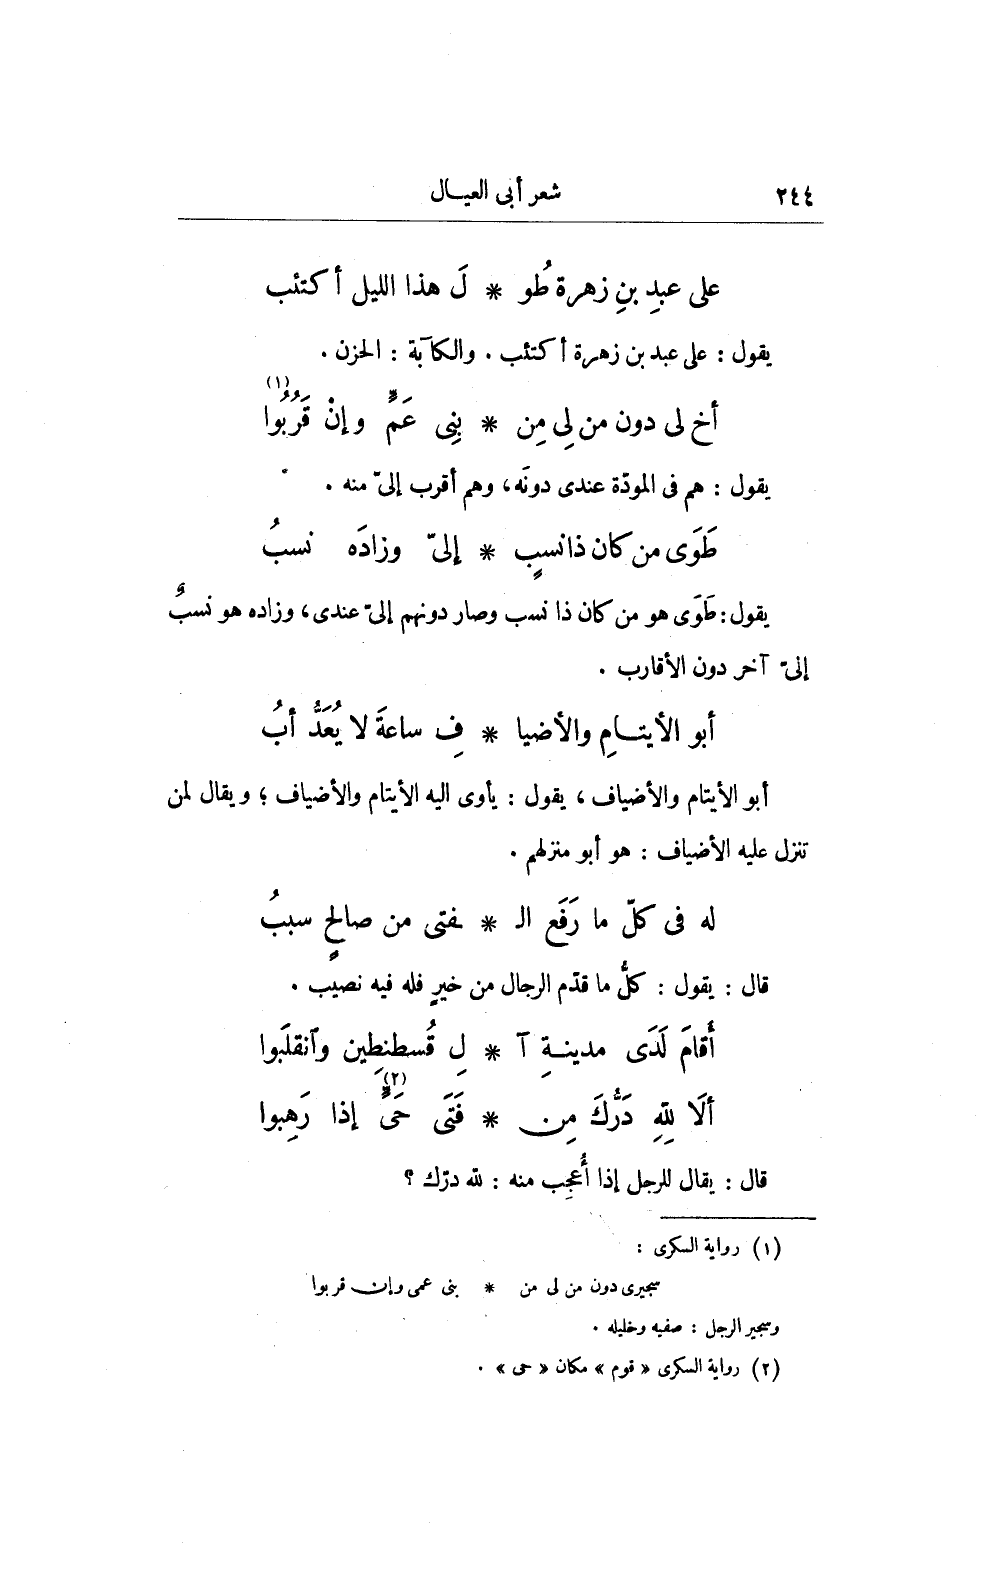 ٢٤٤ شعر أبى العيـال
على عبدِ بنِ زهرة طُو * لَ هذا الليل أكتئب
يقول : على عبد بن زهرة أكتئب . والكآبة : الحزن .
أخ لى دون من لِى مِن * بنِى عَمٍّ وإنْ قَرُبُوا (١)
يقول : هم فى المودّة عندى دونَه، وهم أقرب إلىّ منه .
طَوَى من كان ذا نسبٍ * إلىّ وزادَه نسبُ
يقول : طَوَى هو من كان ذا نسب وصار دونهم إلىّ عندى، وزاده هو نسبٌ
إلىّ آخر دون الأقارب .
أبو الأيتـامِ والأضيا * فِ ساعةَ لا يُعَدُّ أبُ
أبو الأيتام والأضياف ، يقول : يأوى اليه الأيتام والأضياف ؛ ويقال لمن
تنزل عليه الأضياف : هو أبو منزلهم .
له فى كلّ ما رَفَع الـ * ـفتى من صالحٍ سببُ
قال : يقول : كلُّ ما قدّم الرجال من خيرٍ فله فيه نصيب .
أَقامَ لَدَى مدينـةِ آ * لِ قُسطنطِين وآنقلَبوا
ألَا لِلّهِ دَرُّكَ مِن * فَتَى حَىٍّ (٢) إذا رَهِبوا
قال : يقال للرجل إذا أُعجِب منه : لله درّك ؟
(١) رواية السكرى :
سجيرى دون من لى من * بنى عمى وإن قربوا
وسجير الرجل : صفيه وخليله .
(٢) رواية السكرى « قوم » مكان « حى » .